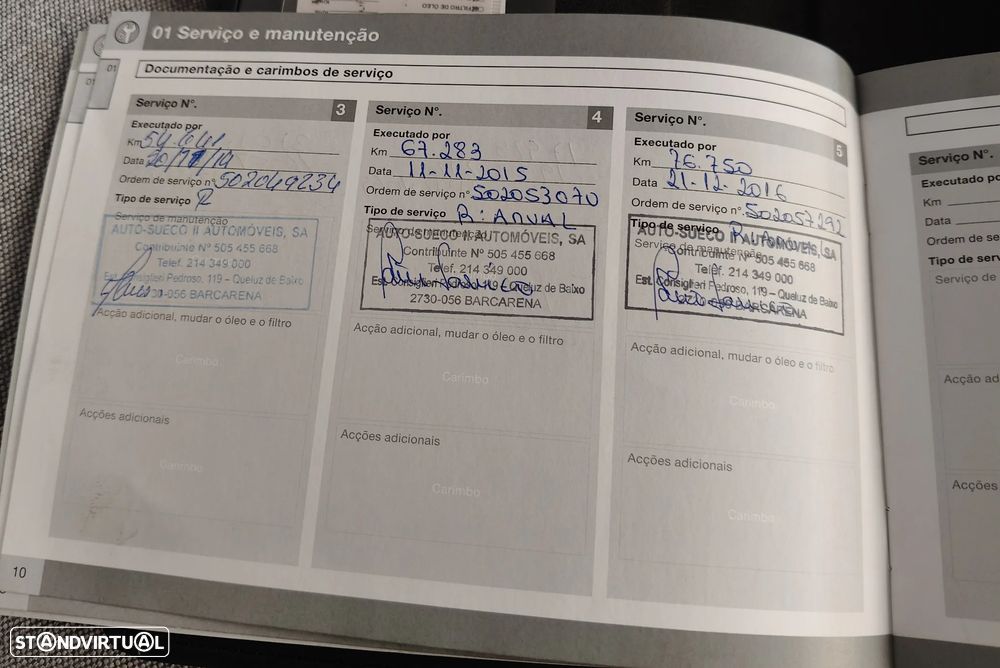 FILTRO DE ÓLEO
01 Serviço e manutenção
01
01
Documentação e carimbos de serviço
Serviço Nº.
3
Executado por
Km 54.641
Data
Ordem de serviço nº 502049234
Tipo de serviço R
Serviço de manutenção
AUTO-SUECO II AUTOMÓVEIS, SA
Contribuinte Nº 505 455 668
Telef. 214 349 000
Est. Consiglieri Pedroso, 119 – Queluz de Baixo
2730-056 BARCARENA
Acção adicional, mudar o óleo e o filtro
Carimbo
Acções adicionais
Carimbo
Serviço Nº.
4
Executado por
Km 67.283
Data 11-11-2015
Ordem de serviço nº 502053070
Tipo de serviço R: ANUAL
Serviço de manutenção
AUTO-SUECO II AUTOMÓVEIS, SA
Contribuinte Nº 505 455 668
Telef. 214 349 000
Est. Consiglieri Queluz de Baixo
2730-056 BARCARENA
Acção adicional, mudar o óleo e o filtro
Carimbo
Acções adicionais
Carimbo
Serviço Nº.
5
Executado por
Km 76.750
Data 21-12-2016
Ordem de serviço nº. 502057292
Tipo de serviço
Serviço de manutenção
AUTO-SUECO II AUTOMÓVEIS, SA
Contribuinte Nº 505 455 668
Telef. 214 349 000
Est. Consiglieri Pedroso, 119 – Queluz de Baixo
BARCARENA
Acção adicional, mudar o óleo e o filtro
Carimbo
Acções adicionais
Carimbo
10
Serviço Nº.
Executado po
Km
Data
Ordem de se
Tipo de serv
Serviço de
Acção ad
Acções
STANDVIRTUAL